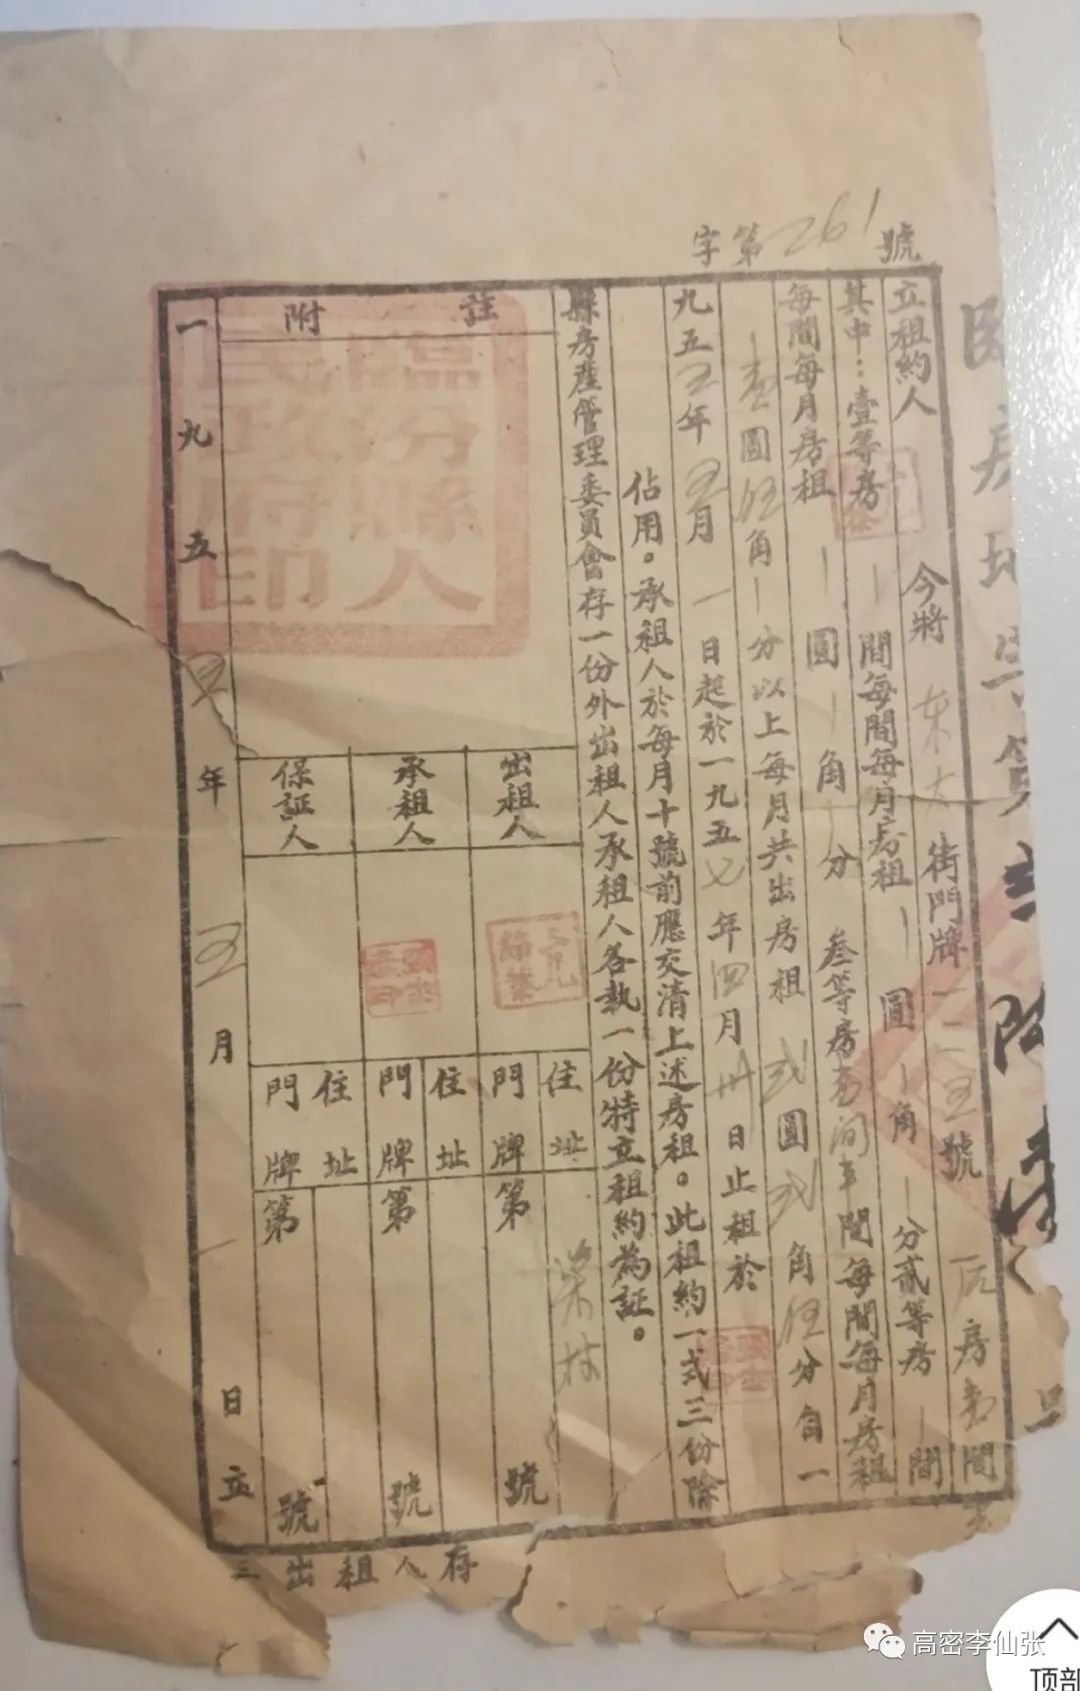 字第261號
立租約人 今將 东大 街門牌一二五號 房壹間
其中：壹等房 間每間每月房租 圓 角 分貳等房 間
每間每月房租 圓 角 分 叁等房壹间半間每間每月房租
壹圓伍角 分以上每月共出房租 弍圓弍角伍分自一
九五五年五月一日起於一九五七年四月卅日止租於
佔用。承租人於每月十號前應交清上述房租。此租約一式三份除
縣房產管理委員會存一份外出租人承租人各執一份特立租約為証。
附註
出租人
住址 梁村
門牌第 號
承租人
住址
門牌第 號
保証人
住址
門牌第 號
一九五五年五月 日立
三出租人存
臨汾縣人民政府印
高密李仙张
顶部